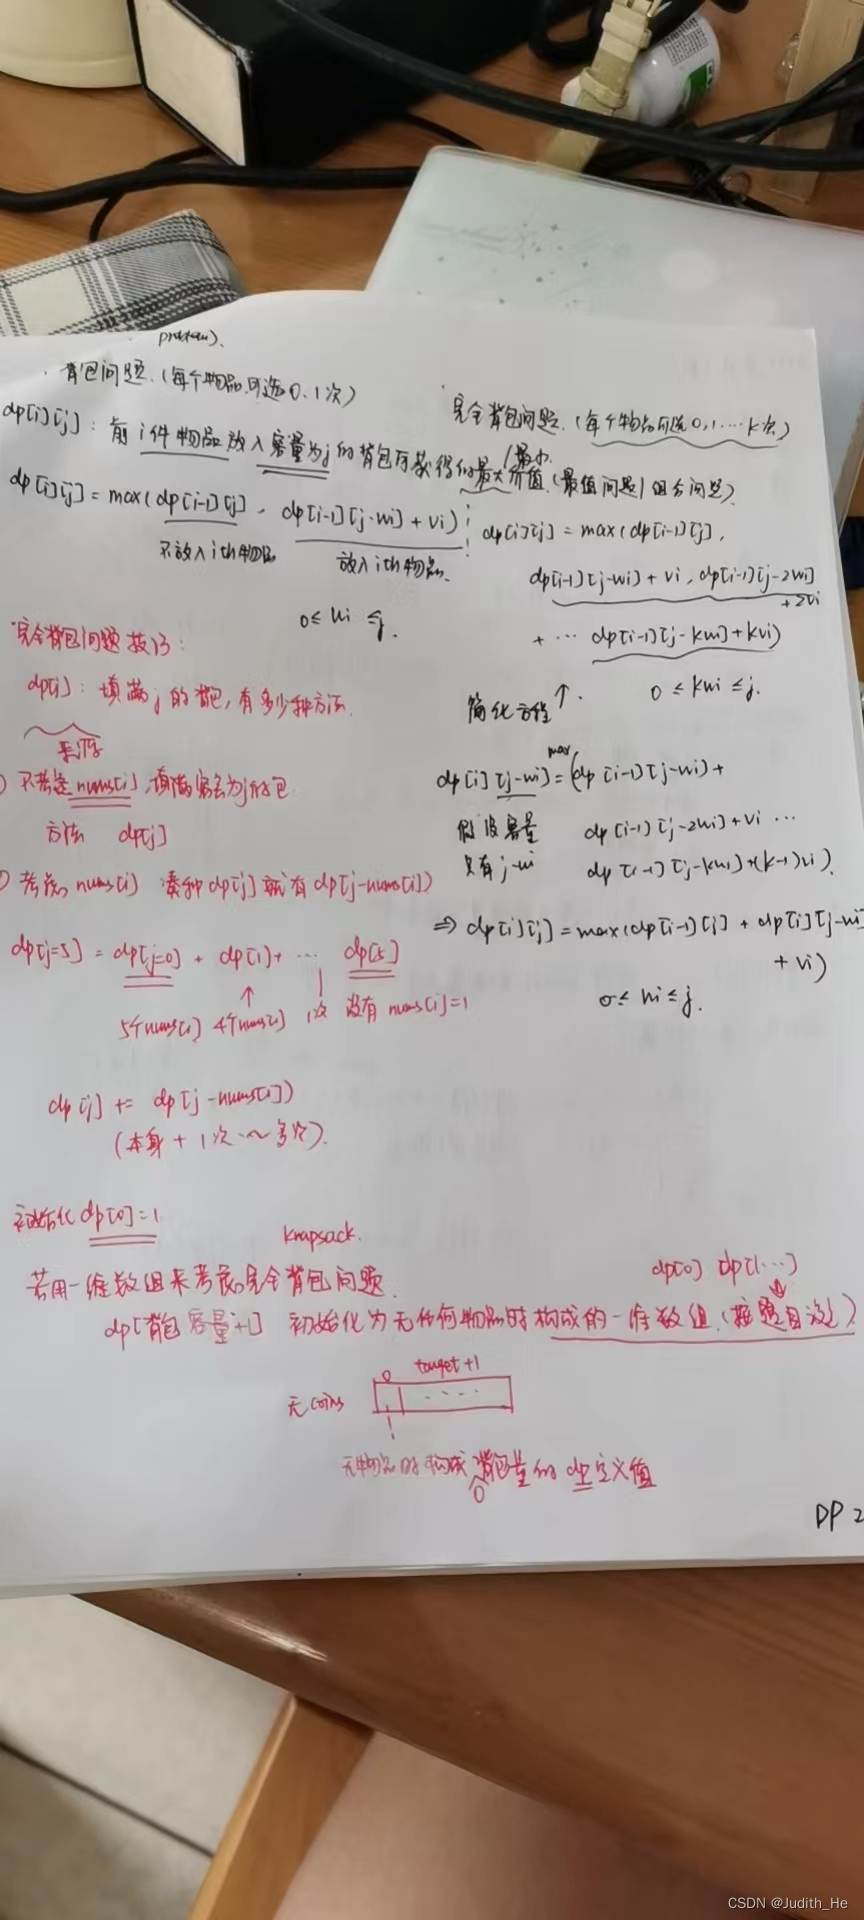 背包问题.(每个物品可选0、1次)
dp[i][j]: 前i件物品放入容量为j的背包可获得的最大价值.(最值问题/组合问题)
/最小
dp[i][j] = max(dp[i-1][j], dp[i-1][j-wi] + vi)
不放入ith物品 放入ith物品.
0≤ wi ≤j.
完全背包问题.(每个物品可选0,1....k次)
dp[i][j] = max(dp[i-1][j],
dp[i-1][j-wi] + vi, dp[i-1][j-2wi]
+2vi
+ ... dp[i-1][j-kwi]+kvi)
0 ≤ kwi ≤j.
简化方程↑.
dp[i][j-wi] = max(dp[i-1][j-wi] +
假设容量 dp[i-1][j-2wi]+vi ...
只有j-wi dp[i-1][j-kwi]+(k-1)vi).
⇒ dp[i][j] = max(dp[i-1][j] + dp[i][j-wi]
+ vi)
0≤ wi ≤j.
完全背包问题技巧:
dp[j]: 填满j的包,有多少种方法.
来源
不考虑nums[i],填满容量为j的包
方法 dp[j]
考虑nums[i] dp[j]就有dp[j-nums[i]]
dp[j=5] = dp[j=0] + dp[1]+ ... dp[5]
5个nums[i] 4个nums[i] 1次 没有nums[i]=1
dp[j] += dp[j-nums[i]]
(本身 + 1次~多次).
初始化dp[0]=1
knapsack.
若用一维数组来考虑完全背包问题.
dp[0] dp[1...]
dp[背包容量+1] 初始化为无任何物品时构成的一维数组.(按题目设)
0 target+1
无coins ....
无物品时构成背包量的dp定义值
0
DP 2
CSDN @Judith_He